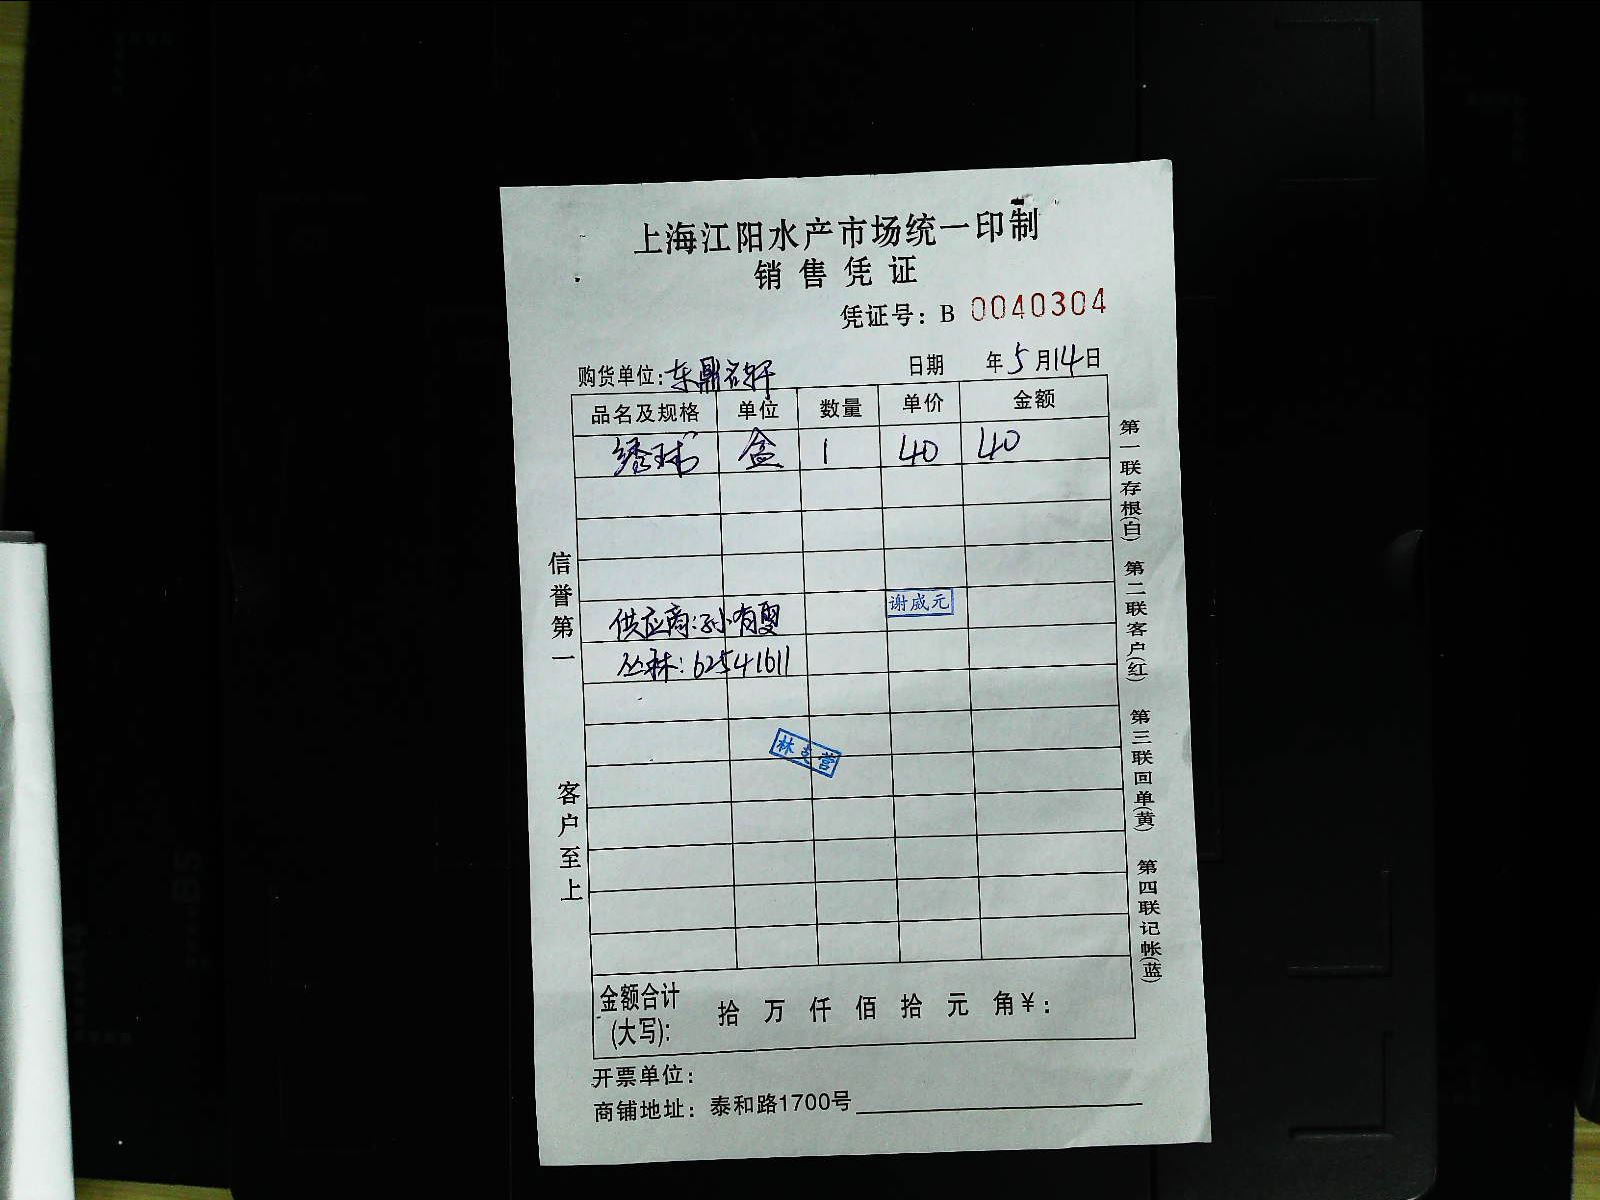 上海江阳水产市场统一印制
销售凭证
凭证号：B 0040304
购货单位：东鼎名轩 日期 年5月14日
品名及规格 单位 数量 单价 金额
绣球 盒 1 40 40
谢威元
供应商：孙有
丛林：62541611
林 营
金额合计(大写): 拾 万 仟 佰 拾 元 角¥：
开票单位：
商铺地址：泰和路1700号
信誉第一 客户至上
第一联存根(白) 第二联客户(红) 第三联回单(黄) 第四联记帐(蓝)